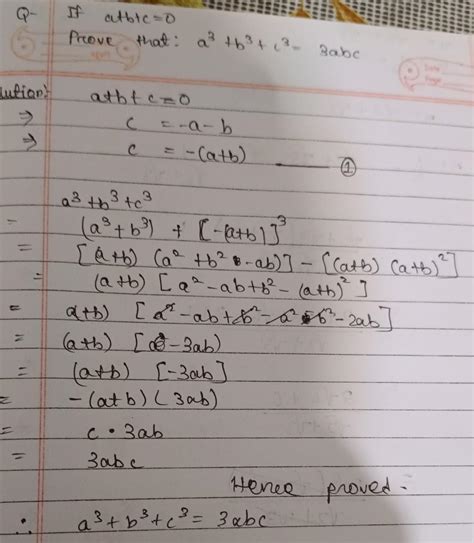 Q- If a+b+c=0
Prove that: a³+b³+c³= 3abc
Date
Page
lution:
a+b+c=0
⇒ c = -a-b
⇒ c = -(a+b) ——— ①
a³+b³+c³
= (a³+b³) + [-(a+b)]³
= [(a+b) (a²+b²-ab)] - [(a+b) (a+b)²]
= (a+b) [a²-ab+b²-(a+b)²]
= (a+b) [a²-ab+b²-a²-b²-2ab]
= (a+b) [-3ab)
= (a+b) [-3ab]
= -(a+b) (3ab)
= c · 3ab
= 3abc
Hence proved.
∴ a³+b³+c³ = 3abc